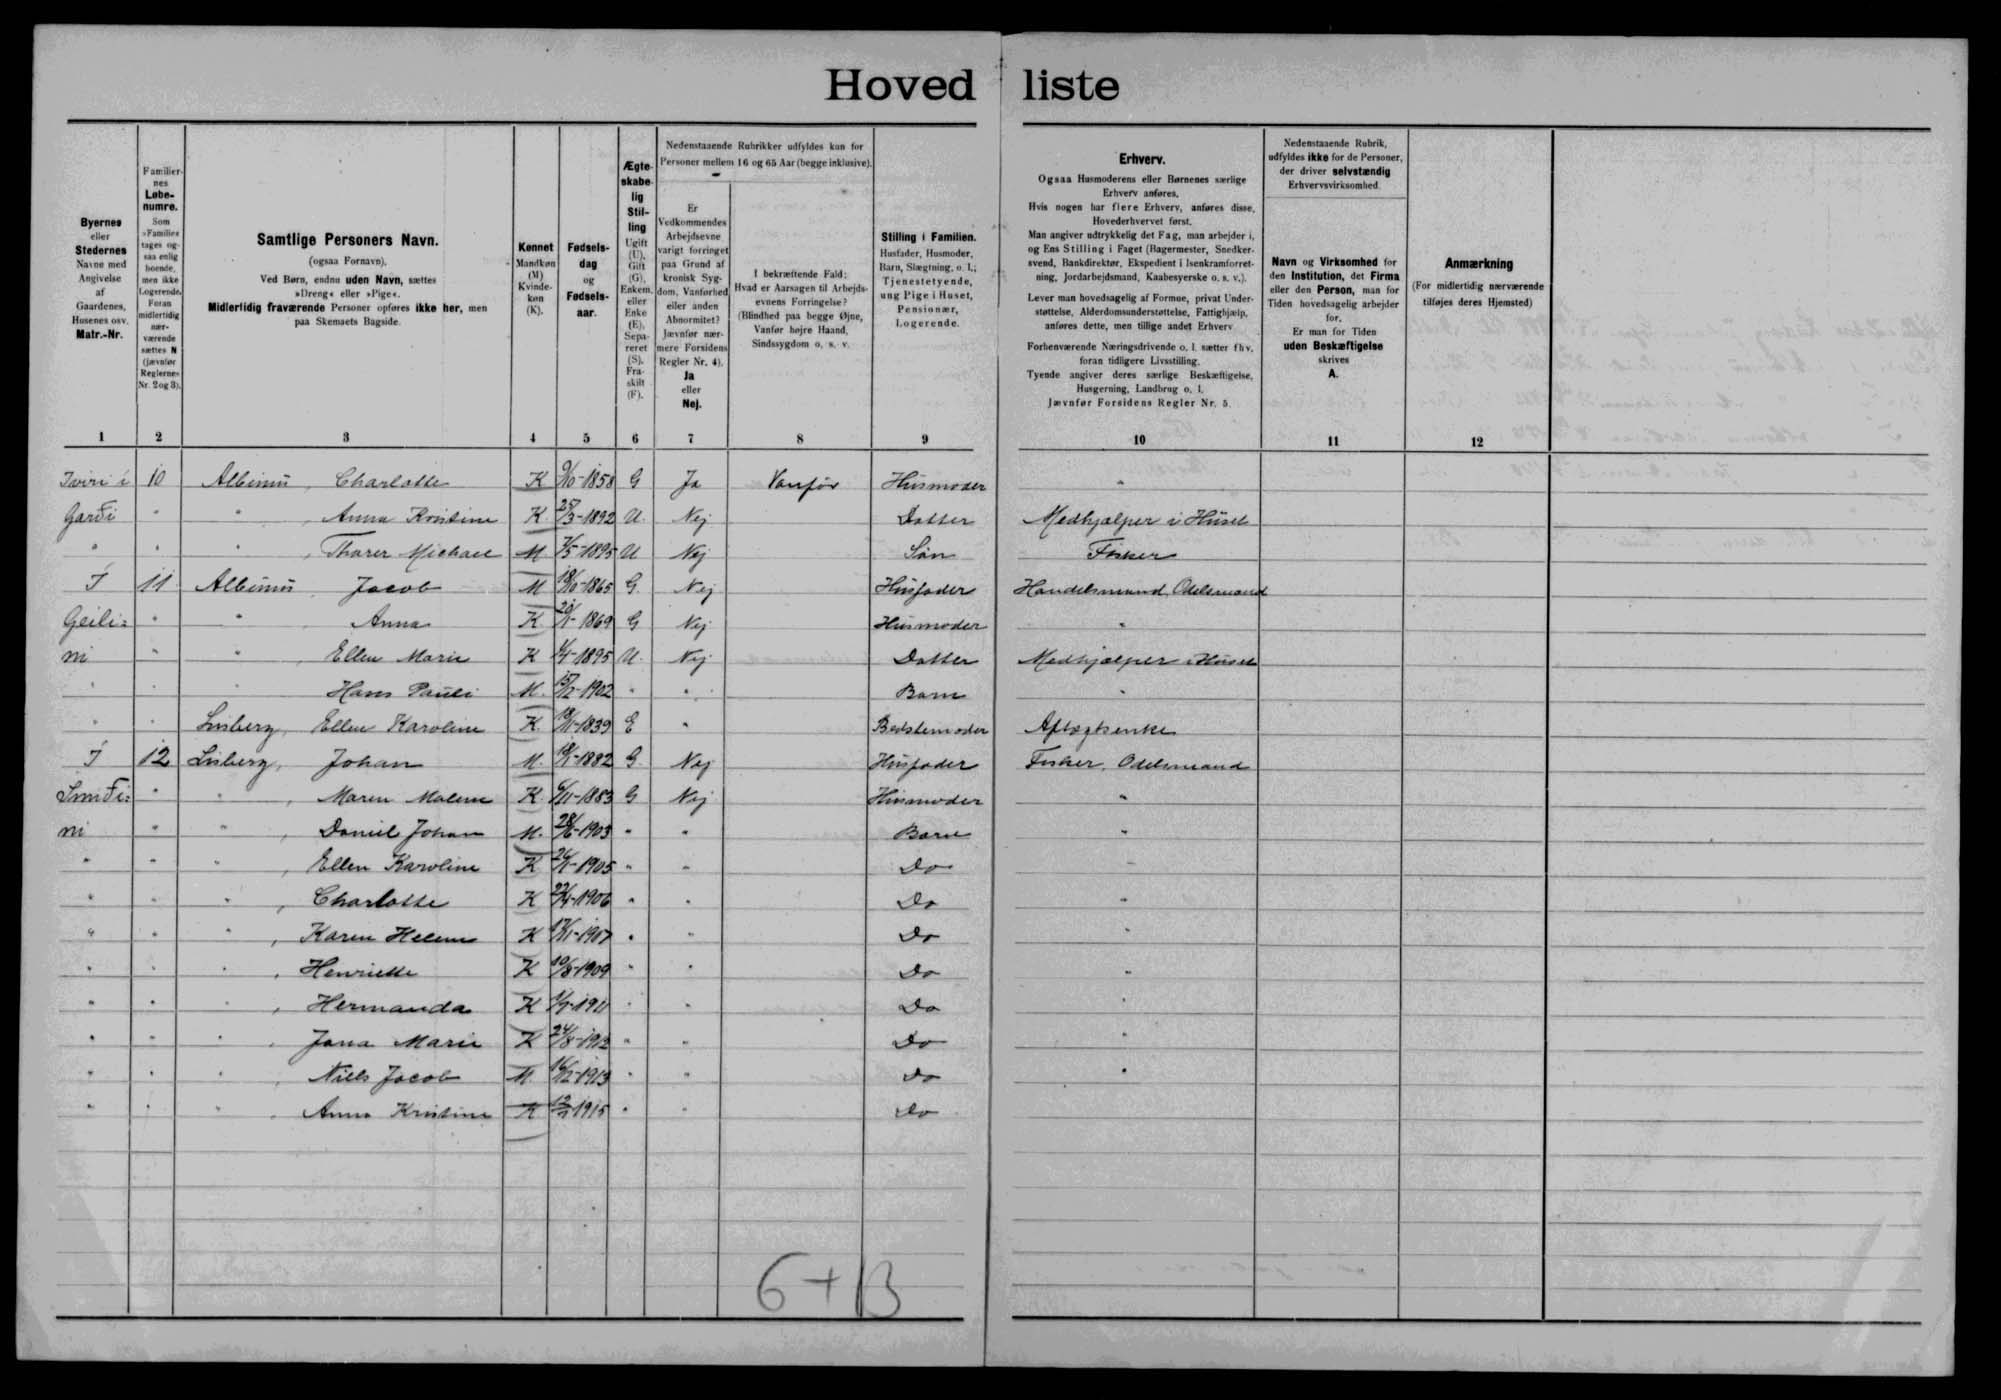 Hovedliste
Byernes eller Stedernes Navne med Angivelse af Gaardenes, Husenes osv. Matr.-Nr.
Familiernes Løbenumre. Som »Familie« tages ogsaa enlig boende, men ikke Logerende. Foran midlertidig nærværende sættes N (jævnfør Reglernes Nr. 2 og 3).
Samtlige Personers Navn. (ogsaa Fornavn). Ved Børn, endnu uden Navn, sættes »Dreng« eller »Pige«. Midlertidig fraværende Personer opføres ikke her, men paa Skemaets Bagside.
Kønnet Mandkøn (M) Kvindekøn (K).
Fødselsdag og Fødselsaar.
Ægteskabelig Stilling Ugift (U), Gift (G), Enkem. eller Enke (E), Separeret (S). Fraskilt (F).
Nedenstaaende Rubrikker udfyldes kun for Personer mellem 16 og 65 Aar (begge inklusive).
Er Vedkommendes Arbejdsevne varigt forringet paa Grund af kronisk Sygdom, Vanførhed eller anden Abnormitet? Jævnfør nærmere Forsidens Regler Nr. 4). Ja eller Nej.
I bekræftende Fald: Hvad er Aarsagen til Arbejdsevnens Forringelse? (Blindhed paa begge Øjne, Vanfør højre Haand, Sindssygdom o. s. v.
Stilling i Familien. Husfader, Husmoder, Barn, Slægtning, o. l.; Tjenestetyende, ung Pige i Huset, Pensionær, Logerende.
Erhverv.
Ogsaa Husmoderens eller Børnenes særlige Erhverv anføres.
Hvis nogen har flere Erhverv, anføres disse, Hovederhvervet først.
Man angiver udtrykkelig det Fag, man arbejder i, og Ens Stilling i Faget (Bagermester, Snedkersvend, Bankdirektør, Ekspedient i Isenkramforretning, Jordarbejdsmand, Kaabesyerske o. s. v.).
Lever man hovedsagelig af Formue, privat Understøttelse, Alderdomsunderstøttelse, Fattighjælp, anføres dette, men tillige andet Erhverv
Forhenværende Næringsdrivende o. l. sætter fhv. foran tidligere Livsstilling.
Tyende angiver deres særlige Beskæftigelse, Husgerning, Landbrug o. l.
Jævnfør Forsidens Regler Nr. 5.
Nedenstaaende Rubrik, udfyldes ikke for de Personer, der driver selvstændig Erhvervsvirksomhed.
Navn og Virksomhed for den Institution, det Firma eller den Person, man for Tiden hovedsagelig arbejder for.
Er man for Tiden uden Beskæftigelse skrives A.
Anmærkning (For midlertidig nærværende tilføjes deres Hjemsted)
1 2 3 4 5 6 7 8 9 10 11 12
Iviri í 10 Albinus, Charlotte K 9/10-1858 G Ja Vanfør Husmoder "
Garði " " , Anna Kristine K. 25/3-1892 U. Nej Datter Medhjælper i Huset
" " " , Thorer Michael M 7/5-1895 U Nej Søn Fisker
Í 11 Albinus, Jacob M 18/10-1865 G. Nej Husfader Handelsmand, Odelsmand
Geili= " " Anna K 20/1-1869 G Nej Husmoder "
ni " " , Ellen Marie K 1/4-1895 U. Nej Datter Medhjælper i Huset
" " Hans Pauli M. 15/12-1902 " " Barn "
" " Lisberg, Ellen Karoline K. 18/11-1839 E " Bedstemoder Aftægtsenke
Í 12 Lisberg, Johan M. 18/1-1882 G. Nej Husfader Fisker, Odelsmand
Smiði= " " , Maren Malene K. 6/11-1883 G Nej Husmoder "
ni " " , Daniel Johan M. 28/6-1903 " " Barn "
" " " , Ellen Karoline K 24/1-1905 " " Do
" " " , Charlotte K 22/4-1906 " " Do "
" " " , Karen Helene K 17/11-1907 " " Do "
" " " , Henriette K 10/8-1909 " " Do "
" " " , Hermanda K 1/9-1911 " " Do "
" " " , Jona Marie K 24/8-1912 " " Do "
" " " , Niels Jacob M. 16/12-1913 " " Do "
" " " , Anna Kristine K 1915 " " Do
6+13